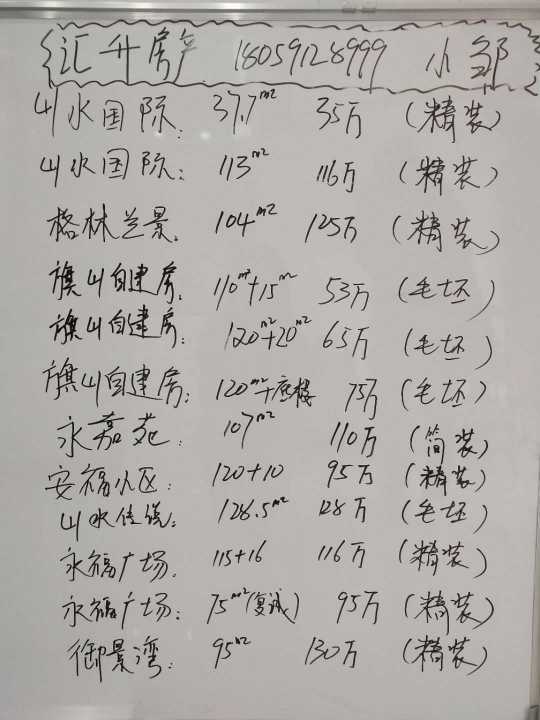 汇升房产 18059128999 小邹
山水国际: 37.7m2 35万 (精装)
山水国际: 113m2 116万 (精装)
格林兰景: 104m2 125万 (精装)
旗山自建房: 110m2+15m2 53万 (毛坯)
旗山自建房: 120m2+20m2 65万 (毛坯)
旗山自建房: 120m2+底楼 75万 (毛坯)
永嘉苑: 107m2 110万 (简装)
安福小区: 120+10 95万 (精装)
山水佳境: 128.5m2 128万 (毛坯)
永福广场. 115+16 116万 (精装)
永福广场: 75m2(复式) 95万 (精装)
御景湾: 95m2 130万 (精装)